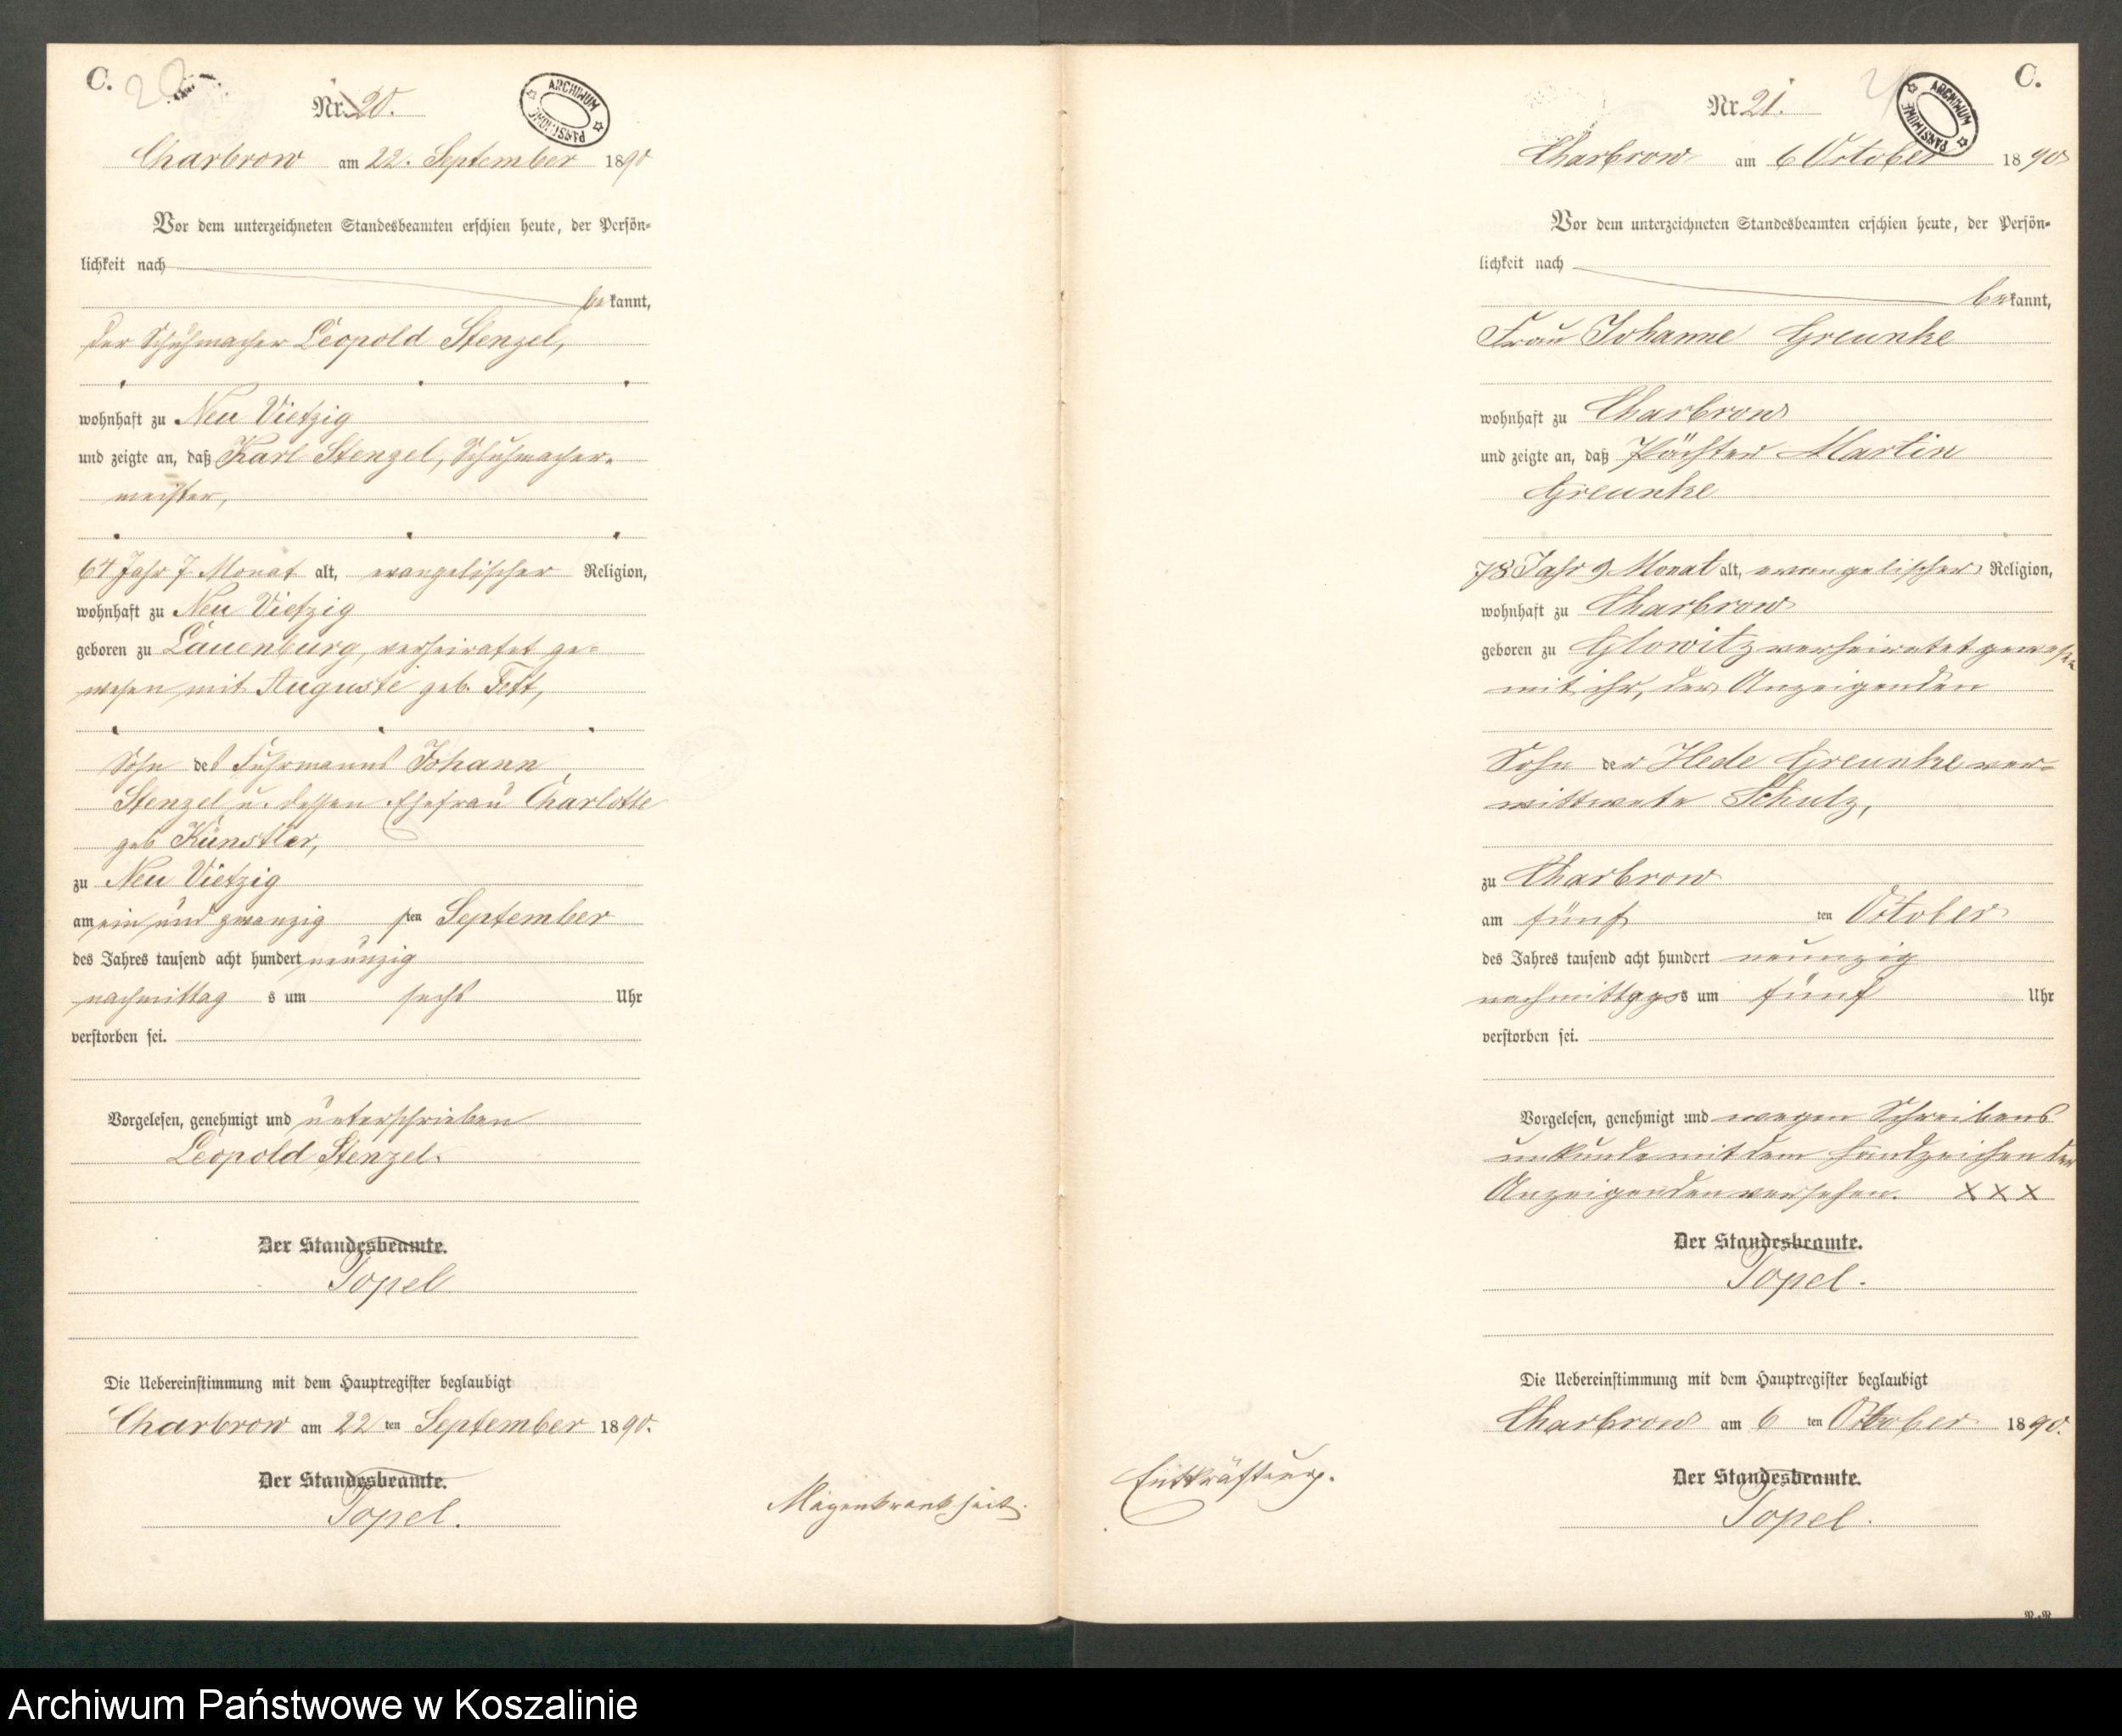 C. 20
Nr. 20.
ARCHIWUM PAŃSTWOWE
Charbrow am 22. September 1890
Vor dem unterzeichneten Standesbeamten erschien heute, der Persön-
lichkeit nach
bekannt,
der Schuhmacher Leopold Stenzel,
wohnhaft zu Neu Vietzig
und zeigte an, daß Karl Stenzel, Schuhmacher-
meister,
64 Jahr 7 Monat alt, evangelischer Religion,
wohnhaft zu Neu Vietzig
geboren zu Lauenburg, verheiratet ge-
wesen mit Auguste geb. Tett,
Sohn des Fuhrmanns Johann
Stenzel u. dessen Ehefrau Charlotte
geb. Künstler,
zu Neu Vietzig
am ein und zwanzigsten September
des Jahres tausend acht hundert neunzig
nachmittags um sechs Uhr
verstorben sei.
Vorgelesen, genehmigt und unterschrieben
Leopold Stenzel.
Der Standesbeamte.
Topel
Die Uebereinstimmung mit dem Hauptregister beglaubigt
Charbrow am 22ten September 1890.
Der Standesbeamte.
Topel.
Magenkrankheit.
C.
Nr. 21.
ARCHIWUM PAŃSTWOWE
Charbrow am 6 October 1890
Vor dem unterzeichneten Standesbeamten erschien heute, der Persön-
lichkeit nach
bekannt,
Frau Johanne Greunke
wohnhaft zu Charbrow
und zeigte an, daß Pächter Martin
Greunke
78 Jahr 9 Monat alt, evangelischer Religion,
wohnhaft zu Charbrow
geboren zu Glowitz verheiratet gewesen
mit ihr, der Anzeigenden
Sohn der Hede Greunke ver-
wittwete Schulz,
zu Charbrow
am fünften October
des Jahres tausend acht hundert neunzig
nachmittags um fünf Uhr
verstorben sei.
Vorgelesen, genehmigt und wegen Schreibens
unkunde mit dem Handzeichen der
Anzeigenden versehen. XXX
Der Standesbeamte.
Topel.
Die Uebereinstimmung mit dem Hauptregister beglaubigt
Charbrow am 6ten October 1890.
Der Standesbeamte.
Topel.
Entkräftung.
Archiwum Państwowe w Koszalinie